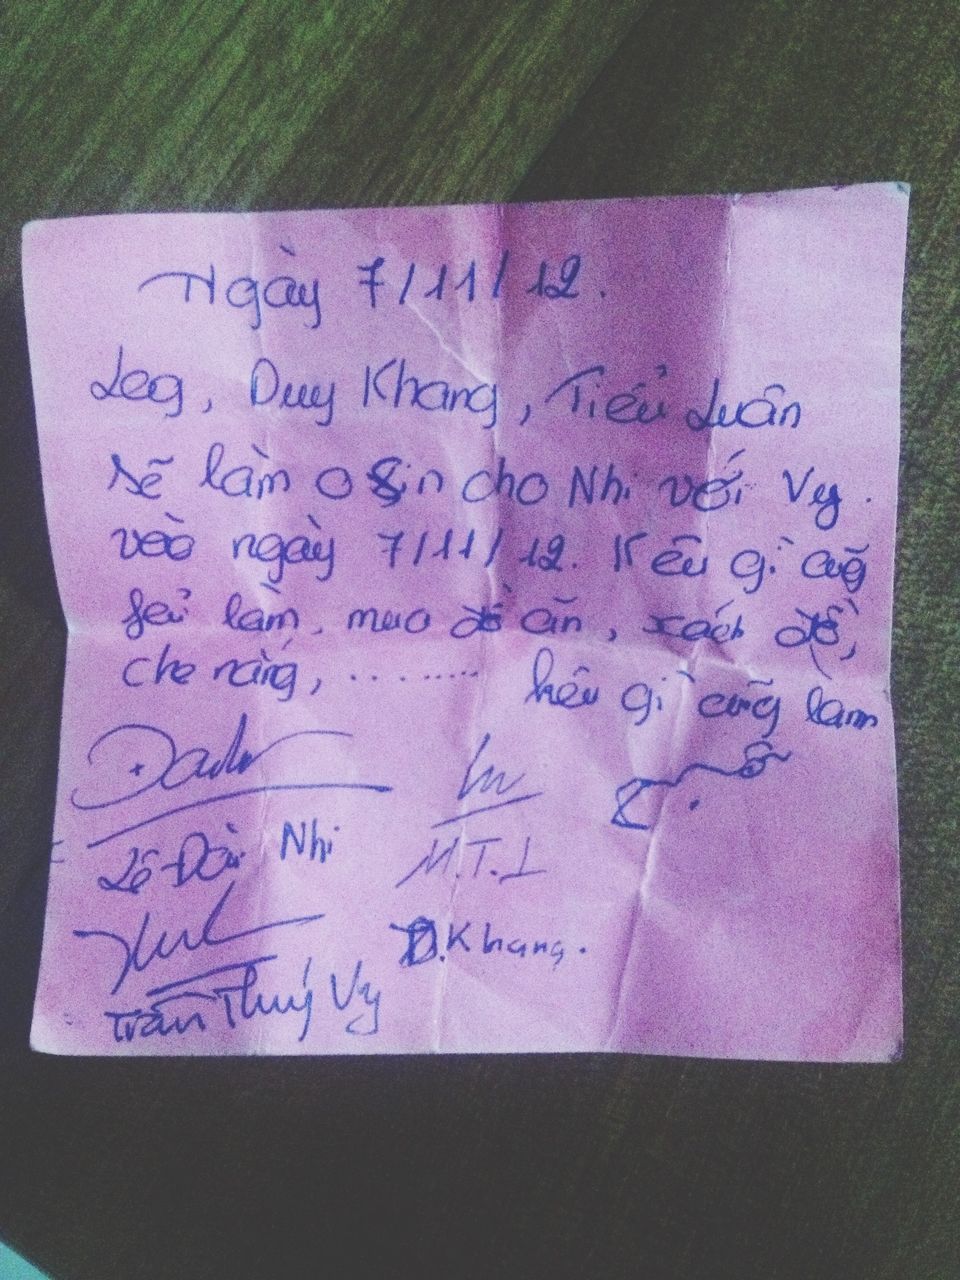 Ngày 7/11/12.
Leg, Duy Khang, Tiểu Luân
sẽ làm o sin cho Nhi với Vy.
vào ngày 7/11/12. Kêu gì cũg
fải làm, mua đồ ăn, xách đồ,
che nắng, ........ kêu gì cũg làm
Lê Đài Nhi
M.T.L
D.Khang.
Trần Thuý Vy